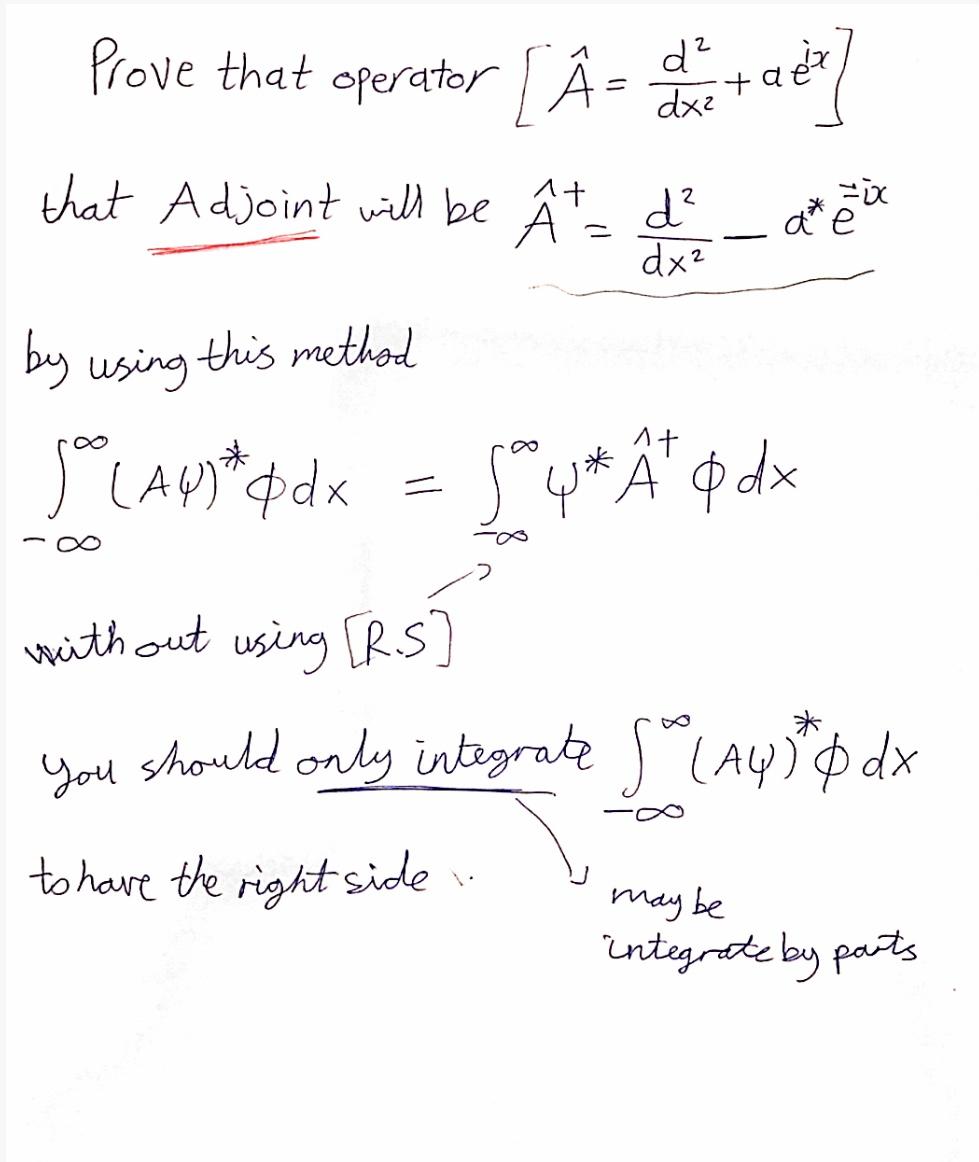 Prove that operator [ Â = d²/dx² + a e^ix ]
that Adjoint will be Â† = d²/dx² − a* e^-ix
by using this method
∫_-∞^∞ (Aψ)* φ dx = ∫_-∞^∞ ψ* Â† φ dx
without using [R.S]
you should only integrate ∫_-∞^∞ (Aψ)* φ dx
to have the right side ..
may be
integrate by parts